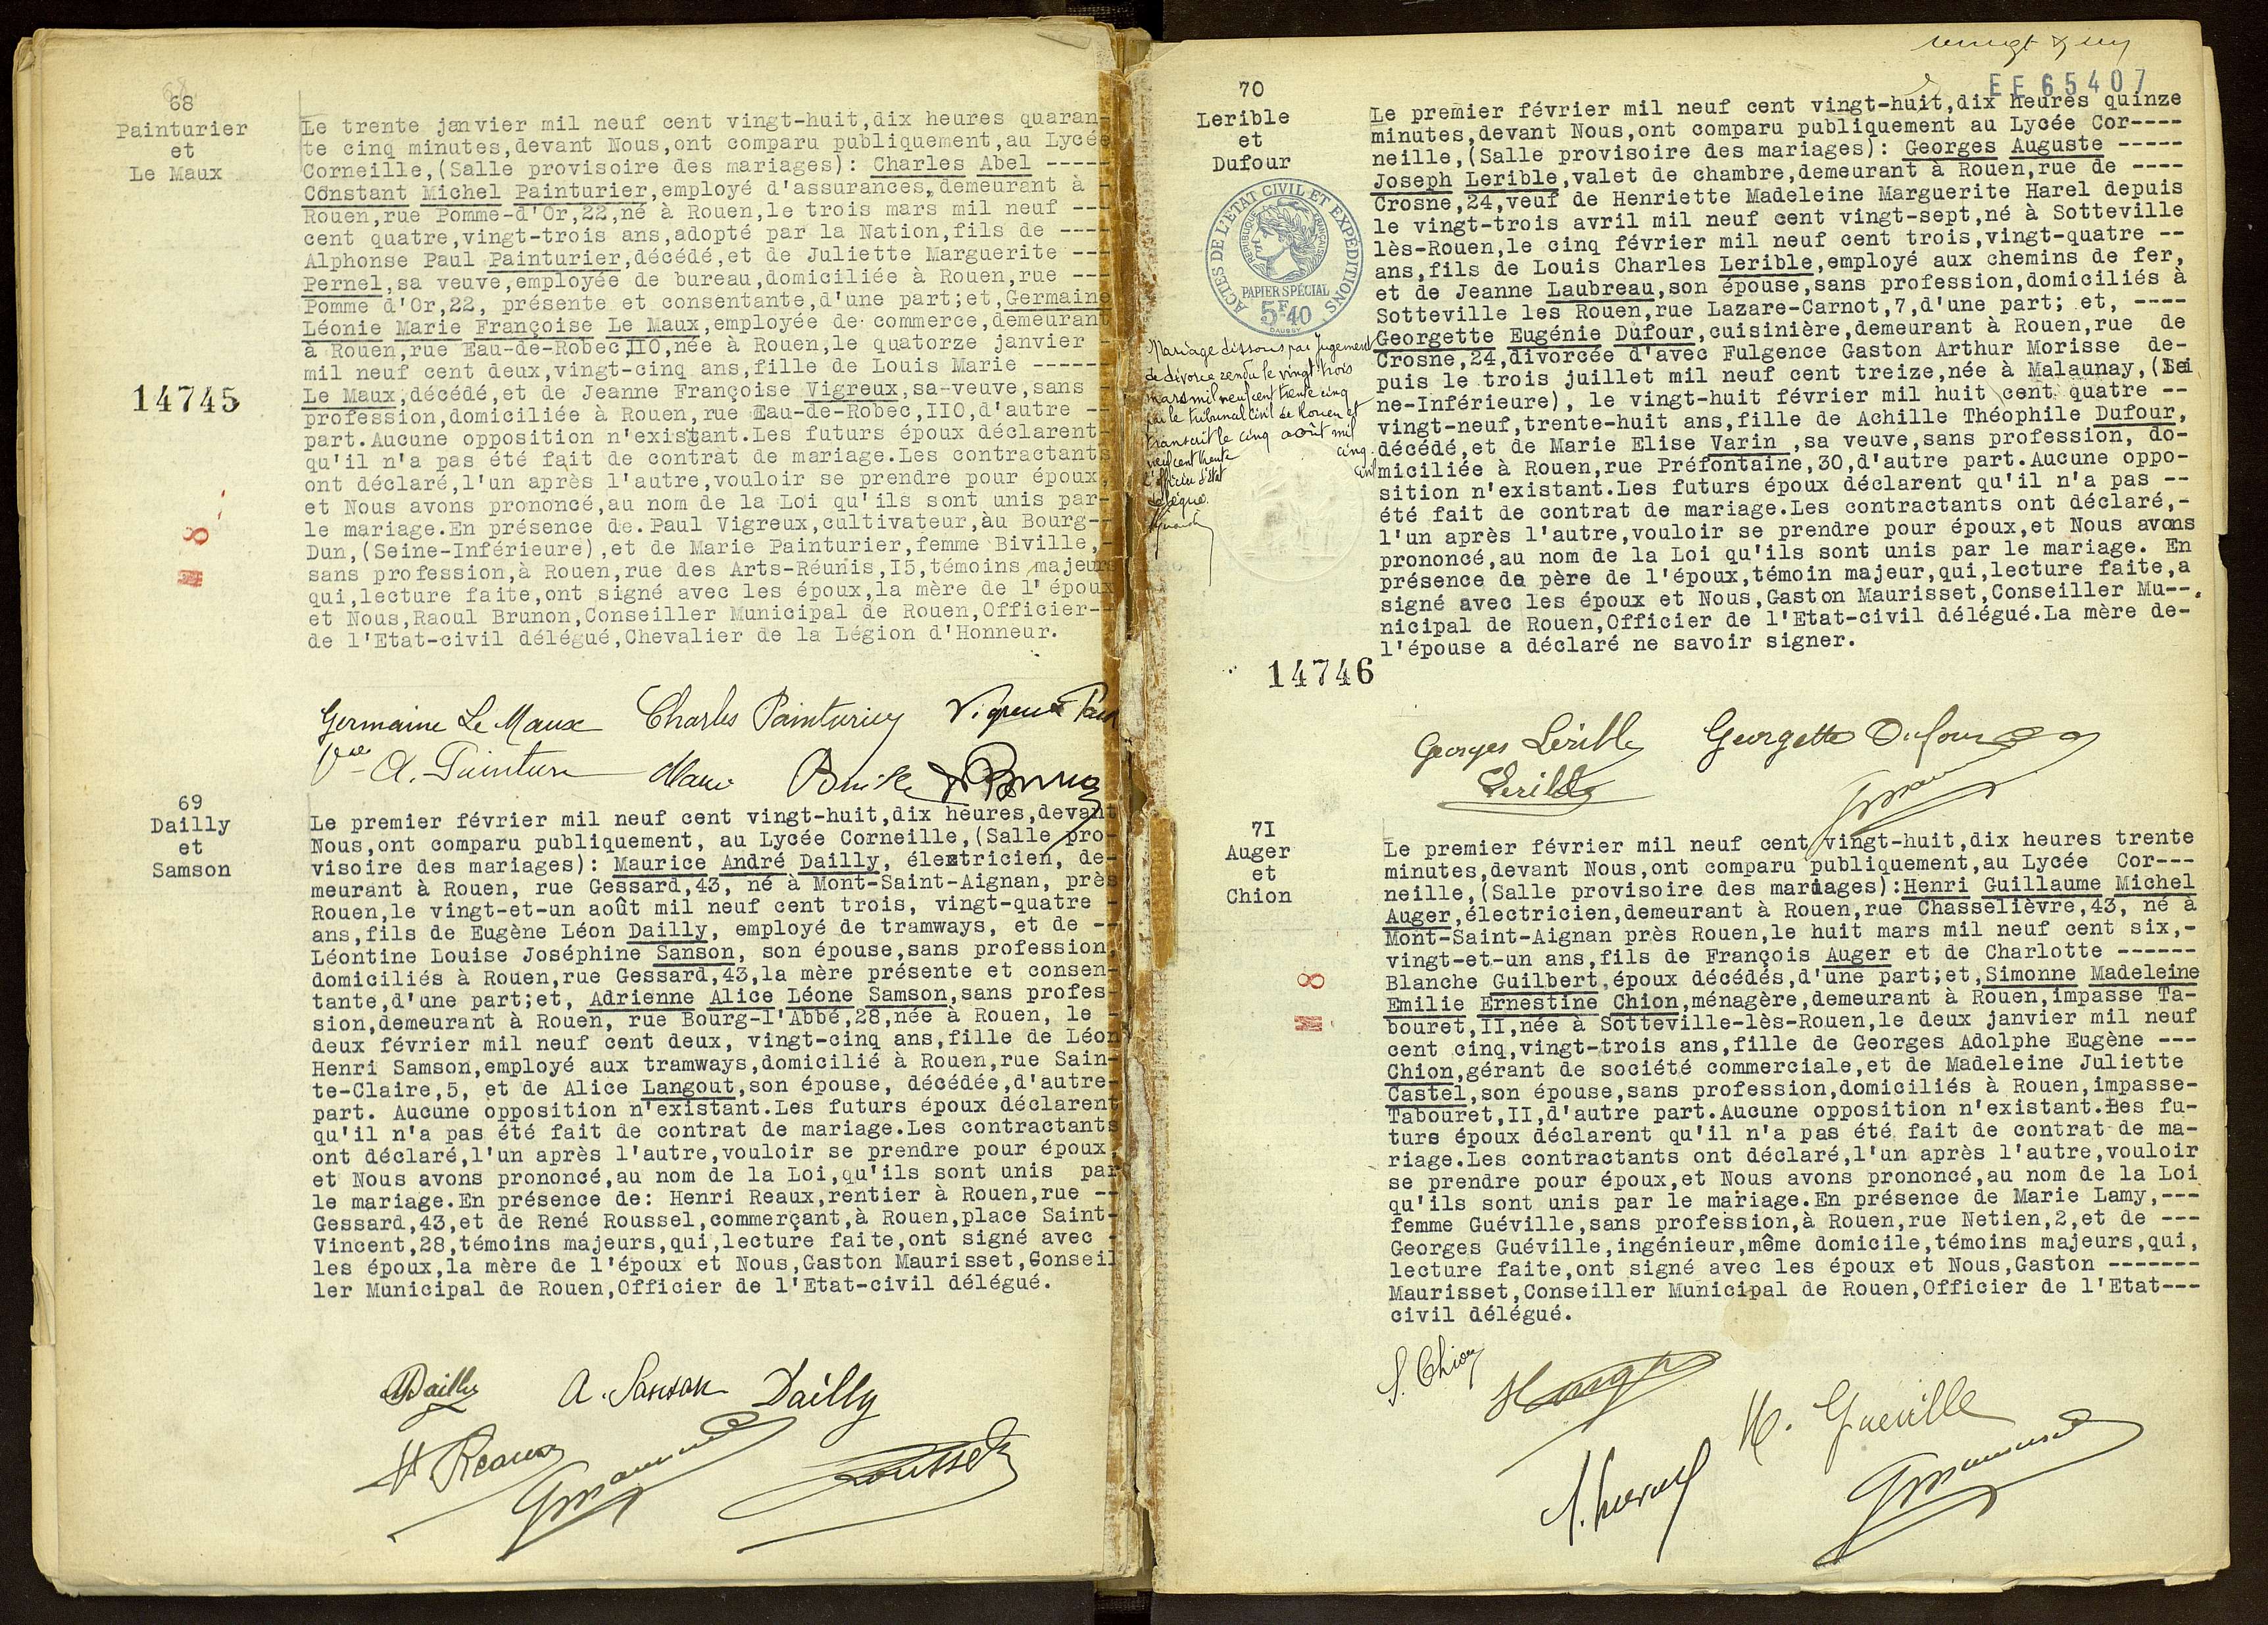 68
Painturier
et
Le Maux
14745
M 8
Le trente janvier mil neuf cent vingt-huit,dix heures quaran-
te cinq minutes,devant Nous,ont comparu publiquement,au Lycée
Corneille,(Salle provisoire des mariages): Charles Abel -----
Constant Michel Painturier,employé d'assurances,demeurant à -
Rouen,rue Pomme-d'Or,22,né à Rouen,le trois mars mil neuf ---
cent quatre,vingt-trois ans,adopté par la Nation,fils de ----
Alphonse Paul Painturier,décédé,et de Juliette Marguerite ---
Pernel,sa veuve,employée de bureau,domiciliée à Rouen,rue ---
Pomme d'Or,22, présente et consentante,d'une part;et,Germaine
Léonie Marie Françoise Le Maux,employée de commerce,demeurant
à Rouen,rue Eau-de-Robec,II0,née à Rouen,le quatorze janvier -
mil neuf cent deux,vingt-cinq ans,fille de Louis Marie -----
Le Maux,décédé,et de Jeanne Françoise Vigreux,sa-veuve,sans -
profession,domiciliée à Rouen,rue Eau-de-Robec,II0,d'autre --
part.Aucune opposition n'existant.Les futurs époux déclarent-
qu'il n'a pas été fait de contrat de mariage.Les contractants
ont déclaré,l'un après l'autre,vouloir se prendre pour époux,
et Nous avons prononcé,au nom de la Loi qu'ils sont unis par-
le mariage.En présence de.Paul Vigreux,cultivateur,àu Bourg--
Dun,(Seine-Inférieure),et de Marie Painturier,femme Biville,-
sans profession,à Rouen,rue des Arts-Réunis,I5,témoins majeurs
qui,lecture faite,ont signé avec les époux,la mère de l'époux
et Nous,Raoul Brunon,Conseiller Municipal de Rouen,Officier--
de l'Etat-civil délégué,Chevalier de la Légion d'Honneur.
Germaine Le Maux Charles Painturier Vigreux Paul
Vve A. Painturier Marie Biville
69
Dailly
et
Samson
Le premier février mil neuf cent vingt-huit,dix heures,devant
Nous,ont comparu publiquement, au Lycée Corneille,(Salle pro-
visoire des mariages): Maurice André Dailly, électricien, de-
meurant à Rouen, rue Gessard,43, né à Mont-Saint-Aignan, près
Rouen,le vingt-et-un août mil neuf cent trois, vingt-quatre -
ans,fils de Eugène Léon Dailly, employé de tramways, et de --
Léontine Louise Joséphine Sanson, son épouse,sans profession,
domiciliés à Rouen,rue Gessard,43,la mère présente et consen-
tante,d'une part;et, Adrienne Alice Léone Samson,sans profes-
sion,demeurant à Rouen, rue Bourg-l'Abbé,28,née à Rouen, le -
deux février mil neuf cent deux, vingt-cinq ans,fille de Léon
Henri Samson,employé aux tramways,domicilié à Rouen,rue Sain-
te-Claire,5, et de Alice Langout,son épouse, décédée,d'autre-
part. Aucune opposition n'existant.Les futurs époux déclarent
qu'il n'a pas été fait de contrat de mariage.Les contractants
ont déclaré,l'un après l'autre,vouloir se prendre pour époux,
et Nous avons prononcé,au nom de la Loi,qu'ils sont unis par
le mariage.En présence de: Henri Reaux,rentier à Rouen,rue --
Gessard,43,et de René Roussel,commerçant,à Rouen,place Saint-
Vincent,28,témoins majeurs,qui,lecture faite,ont signé avec -
les époux,la mère de l'époux et Nous,Gaston Maurisset,Conseil
ler Municipal de Rouen,Officier de l'Etat-civil délégué.
MDailly A. Samson Dailly
H Reaux GMaurisset Roussel
vingt & un
EE 65407
70
Lerible
et
Dufour
ACTES DE L'ETAT CIVIL ET EXPEDITIONS
REPUBLIQUE FRANÇAISE
PAPIER SPÉCIAL
5F40
DAUSSY
Mariage dissous par jugement
de divorce rendu le vingt trois
mars mil neuf cent trente cinq
par le tribunal civil de Rouen et
transcrit le cinq août mil
neuf cent trente cinq.
L'officier d'état civil
délégué.
14746
Le premier février mil neuf cent vingt-huit,dix heures quinze
minutes,devant Nous,ont comparu publiquement au Lycée Cor----
neille,(Salle provisoire des mariages): Georges Auguste -----
Joseph Lerible,valet de chambre,demeurant à Rouen,rue de ----
Crosne,24,veuf de Henriette Madeleine Marguerite Harel depuis
le vingt-trois avril mil neuf cent vingt-sept,né à Sotteville
lès-Rouen,le cinq février mil neuf cent trois,vingt-quatre --
ans,fils de Louis Charles Lerible,employé aux chemins de fer,
et de Jeanne Laubreau,son épouse,sans profession,domiciliés à
Sotteville les Rouen,rue Lazare-Carnot,7,d'une part; et, ----
Georgette Eugénie Dufour,cuisinière,demeurant à Rouen,rue de
Crosne,24,divorcée d'avec Fulgence Gaston Arthur Morisse de-
puis le trois juillet mil neuf cent treize,née à Malaunay,(Sei
ne-Inférieure), le vingt-huit février mil huit cent quatre --
vingt-neuf,trente-huit ans,fille de Achille Théophile Dufour,
décédé,et de Marie Elise Varin ,sa veuve,sans profession, do-
miciliée à Rouen,rue Préfontaine,30,d'autre part.Aucune oppo-
sition n'existant.Les futurs époux déclarent qu'il n'a pas --
été fait de contrat de mariage.Les contractants ont déclaré,-
l'un après l'autre,vouloir se prendre pour époux,et Nous avons
prononcé,au nom de la Loi qu'ils sont unis par le mariage. En
présence de père de l'époux,témoin majeur,qui,lecture faite,a
signé avec les époux et Nous,Gaston Maurisset,Conseiller Mu--.
nicipal de Rouen,Officier de l'Etat-civil délégué.La mère de-
l'épouse a déclaré ne savoir signer.
Georges Lerible Georgette Dufour
Lerible
71
Auger
et
Chion
M 8
Le premier février mil neuf cent vingt-huit,dix heures trente
minutes,devant Nous,ont comparu publiquement,au Lycée Cor---
neille,(Salle provisoire des mariages):Henri Guillaume Michel
Auger,électricien,demeurant à Rouen,rue Chasselièvre,43, né à
Mont-Saint-Aignan près Rouen,le huit mars mil neuf cent six,-
vingt-et-un ans,fils de François Auger et de Charlotte ------
Blanche Guilbert,époux décédés,d'une part;et,Simonne Madeleine
Emilie Ernestine Chion,ménagère,demeurant à Rouen,impasse Ta-
bouret,II,née à Sotteville-lès-Rouen,le deux janvier mil neuf
cent cinq,vingt-trois ans,fille de Georges Adolphe Eugène ---
Chion,gérant de société commerciale,et de Madeleine Juliette
Castel,son épouse,sans profession,domiciliés à Rouen,impasse-
Tabouret,II,d'autre part.Aucune opposition n'existant.Les fu-
turs époux déclarent qu'il n'a pas été fait de contrat de ma-
riage.Les contractants ont déclaré,l'un après l'autre,vouloir
se prendre pour époux,et Nous avons prononcé,au nom de la Loi
qu'ils sont unis par le mariage.En présence de Marie Lamy,---
femme Guéville,sans profession,à Rouen,rue Netien,2,et de ---
Georges Guéville,ingénieur,même domicile,témoins majeurs,qui,
lecture faite,ont signé avec les époux et Nous,Gaston -------
Maurisset,Conseiller Municipal de Rouen,Officier de l'Etat---
civil délégué.
S. Chion
M. Guéville
GMaurisset